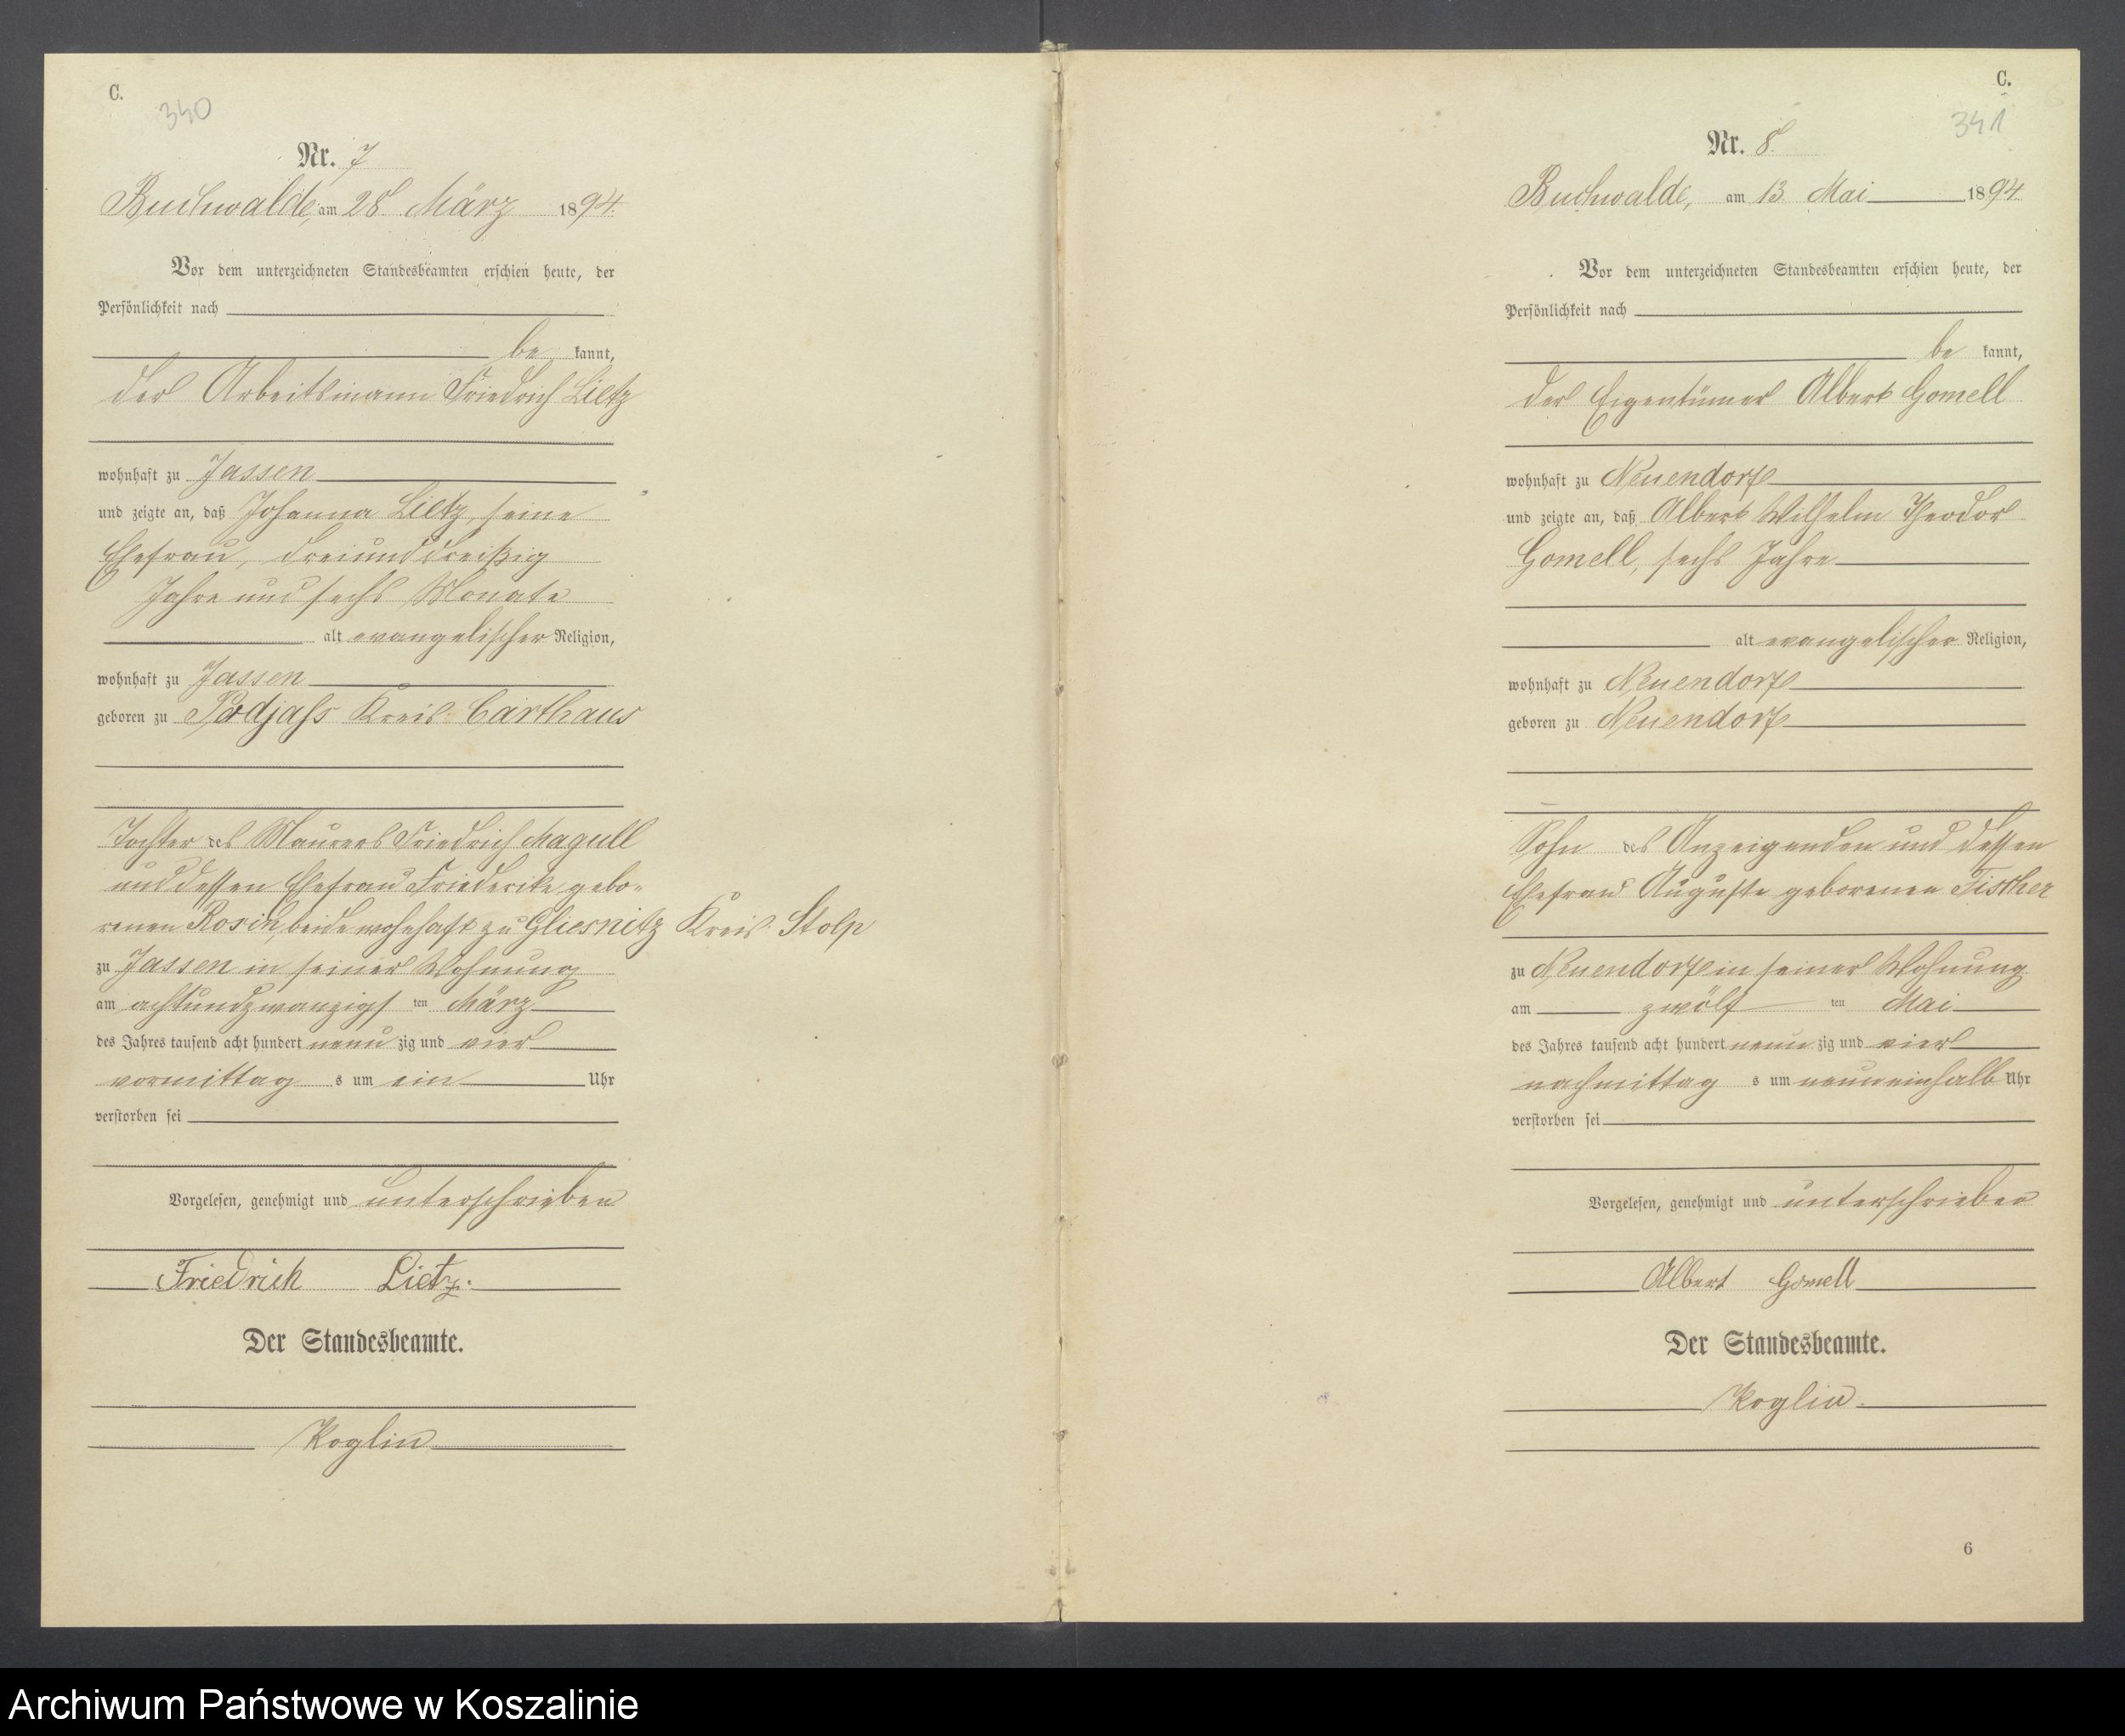 C.
340
Nr. 7
Buchwalde, am 28. März 1894.
Vor dem unterzeichneten Standesbeamten erschien heute, der
Persönlichkeit nach
be kannt,
der Arbeitsmann Friedrich Lietz
wohnhaft zu Jassen
und zeigte an, daß Johanna Lietz, seine
Ehefrau, dreiunddreißig
Jahre und sechs Monate
alt evangelischer Religion,
wohnhaft zu Jassen
geboren zu Podjass Kreis Carthaus
Tochter des Maurers Friedrich Magull
und dessen Ehefrau Friederike gebo-
renen Rosin, beide wohnhaft zu Gliesnitz Kreis Stolp
zu Jassen in seiner Wohnung
am achtundzwanzigs ten März
des Jahres tausend acht hundert neun zig und vier
vormittag s um ein Uhr
verstorben sei
Vorgelesen, genehmigt und unterschrieben
Friedrich Lietz.
Der Standesbeamte.
Koglin
C.
341
Nr. 8
Buchwalde, am 13. Mai 1894.
Vor dem unterzeichneten Standesbeamten erschien heute, der
Persönlichkeit nach
be kannt,
der Eigentümer Albert Gomell
wohnhaft zu Neuendorf
und zeigte an, daß Albert Wilhelm Theodor
Gomell, sechs Jahre
alt evangelischer Religion,
wohnhaft zu Neuendorf
geboren zu Neuendorf
Sohn des Anzeigenden und dessen
Ehefrau Auguste geborenen Tischer
zu Neuendorf in seiner Wohnung
am zwölf ten Mai
des Jahres tausend acht hundert neun zig und vier
nachmittag s um neuneinhalb Uhr
verstorben sei
Vorgelesen, genehmigt und unterschrieben
Albert Gomell
Der Standesbeamte.
Koglin.
6
Archiwum Państwowe w Koszalinie